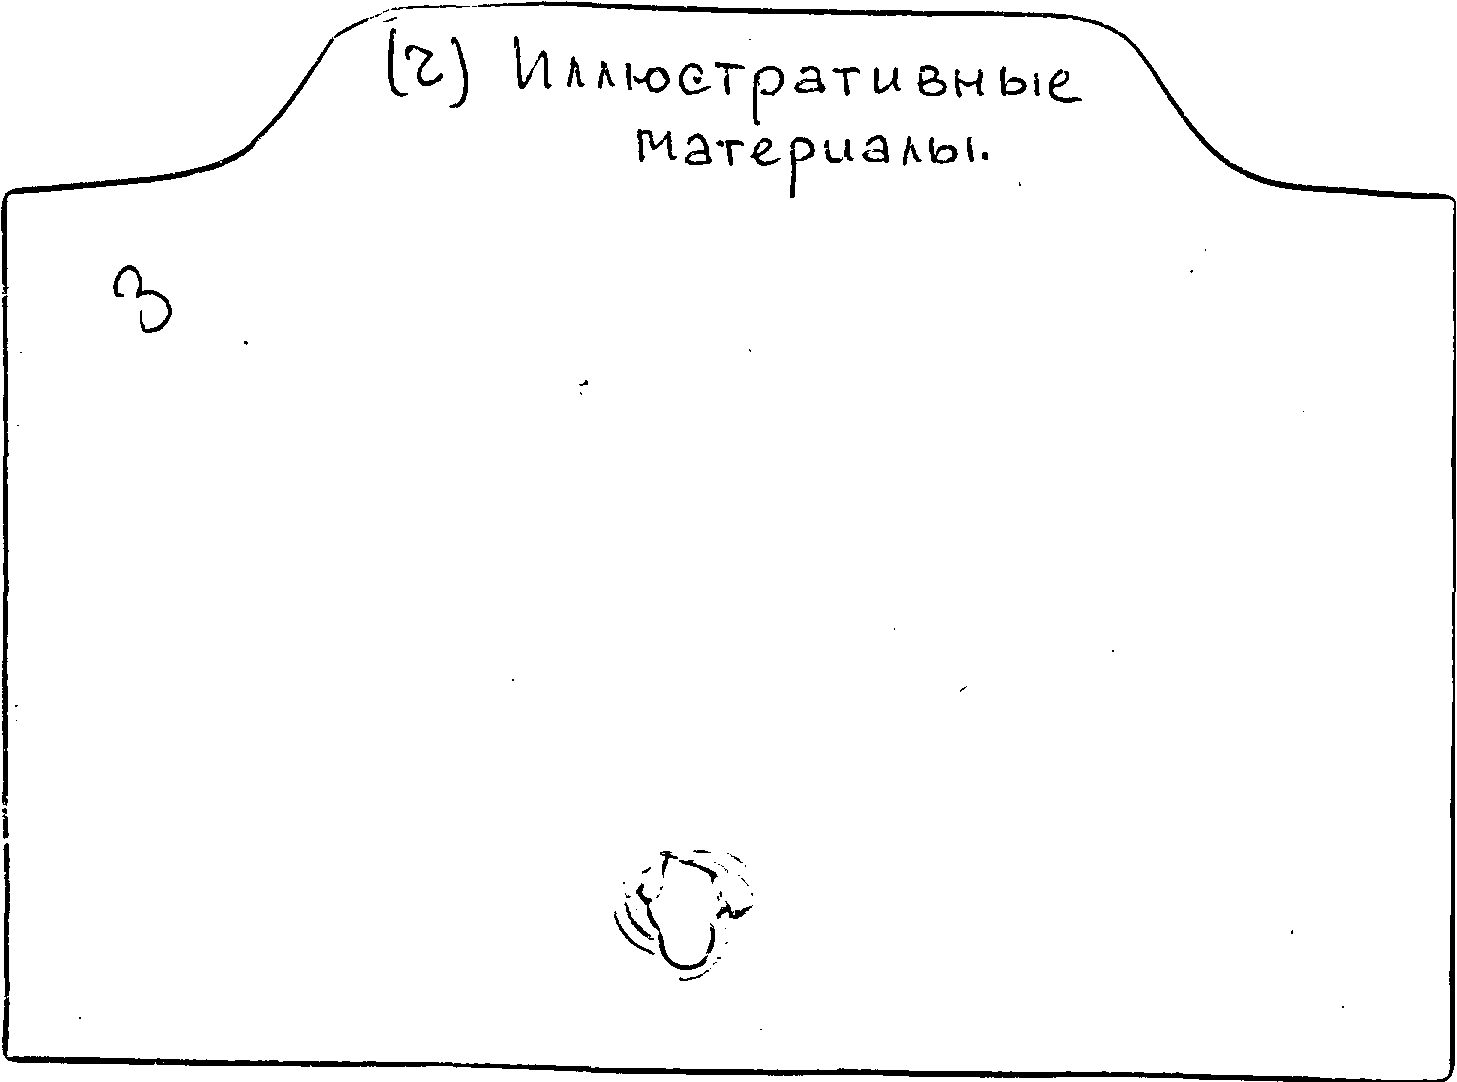 (г) Иллюстративные
материалы.
З